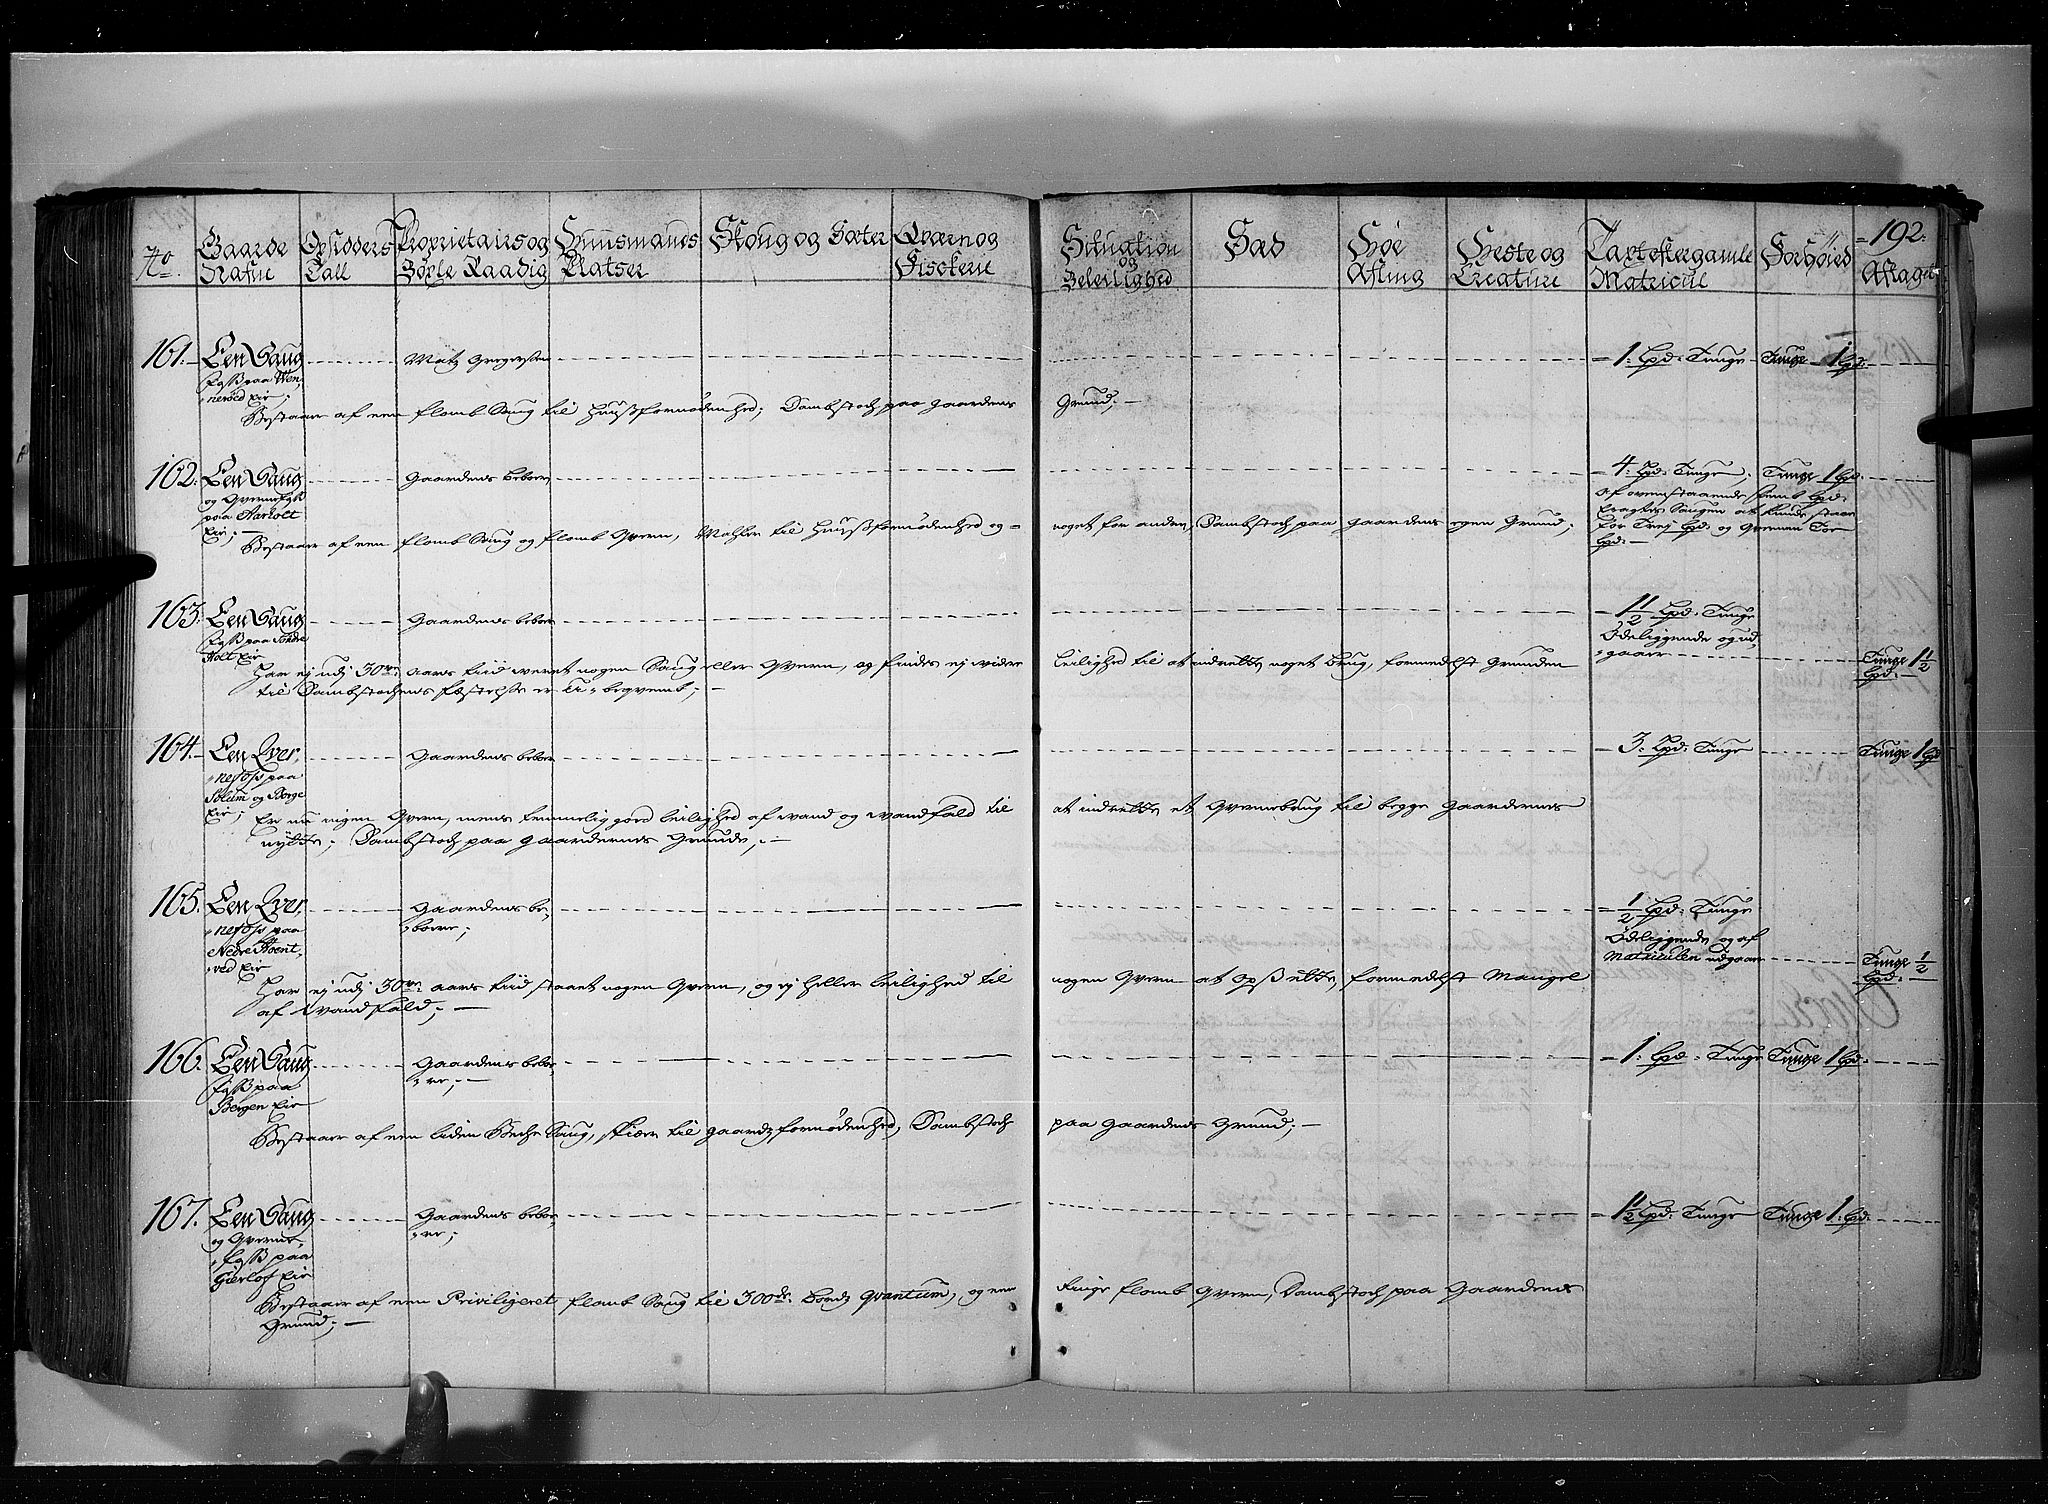 192.
No. Gaarde Nafne
Opsidders Tall
Proprietairs og Böxle Raadig
Huusmands Platser
Skoug og Sæter
Qværn og Fisckerie
Situation og Beleilighed
Sæd
Höe Afling
Heste og Creature
Taxt efter gamle Matricul
Forhöied
Aftaget
161. Een Saug
foss paa Wen
neröed Eie;
Matz Gregersen
1. Lpd: Tunge
Tunge 1 Lpd:
Bestaaer af een flomb Saug til Huusfornödenhed; Dambstoch paa gaardens Grund; —
162. Een Saug
og Qvernefos
paa Aarholt
Eie; —
Gaardens beboere
4. Lpd: Tunge;
Tunge 1 Lpd.
af ovenstaaende femb Lpd:
eragtes Saugen at kunde staae
for Trej Lpd: og Qvernen Toe
Lpd: —
Bestaaer af een flomb Saug og flomb Qvern, Mahler til Huusfornödenhed og noget for andre, Dambstoch paa gaardens egen Grund;
163. Een Saug
foss paa Söndre
Holt Eie
Gaardens beboere
1 1/2 Lpd. Tunge
Ödeliggende og ud,
gaaer
Tunge 1 1/2
Lpd: —
Har ej udj 30ve aars tiid weret nogen Saug eller Qvern, og findes ej videre leilighed til at indrette noget brug, formedelst Grunden
til Dambstochens festelse er u-beqvemt; —
164. Een Qver,
nefoss paa
Solum og Berge
Eie;
Gaardens beboere
3. Lpd: Tunge
Tunge 1 Lpd
Er nu ingen Qvern, mens temmelig goed leilighed af vand og vandfald til at indrette et Qvernebrug til begge gaardernes
nytte; Dambstoch paa gaardernes Grunde; —
165. Een Qver,
nefoss paa
Nedre Hvent,
ved Eie
Gaardens be,
boere;
1/2 Lpd: Tunge
Ödeliggende og af
Matriculen udgaaer
Tunge 1/2
Lpd: —
Har ej udj 30ve aars tiid staaet nogen Qvern, og ej heller leilighed til nogen Qvern at opsette, formedelst Mangel
af Vandfald; —
166. Een Saug
foss paa
Bergen Eie
Gaardens beboe,
re; —
1. Lpd: Tunge
Tunge 1 Lpd:
Bestaaer af een liden Beche Saug, skiær til gaardz fornödenhed, Dambstoch paa gaardens Grund; —
167. Een Saug
og Qverne,
foss paa
Gierlof Eie
Gaardens beboe,
re;
1 1/2 Lpd: Tunge
Tunge 1. Lpd:
Bestaaer af een Priviligeret flomb Saug til 300de Bordz Qvantum, og een ringe flomb Qvern, Dambstoch paa Gaardens
Grund; —